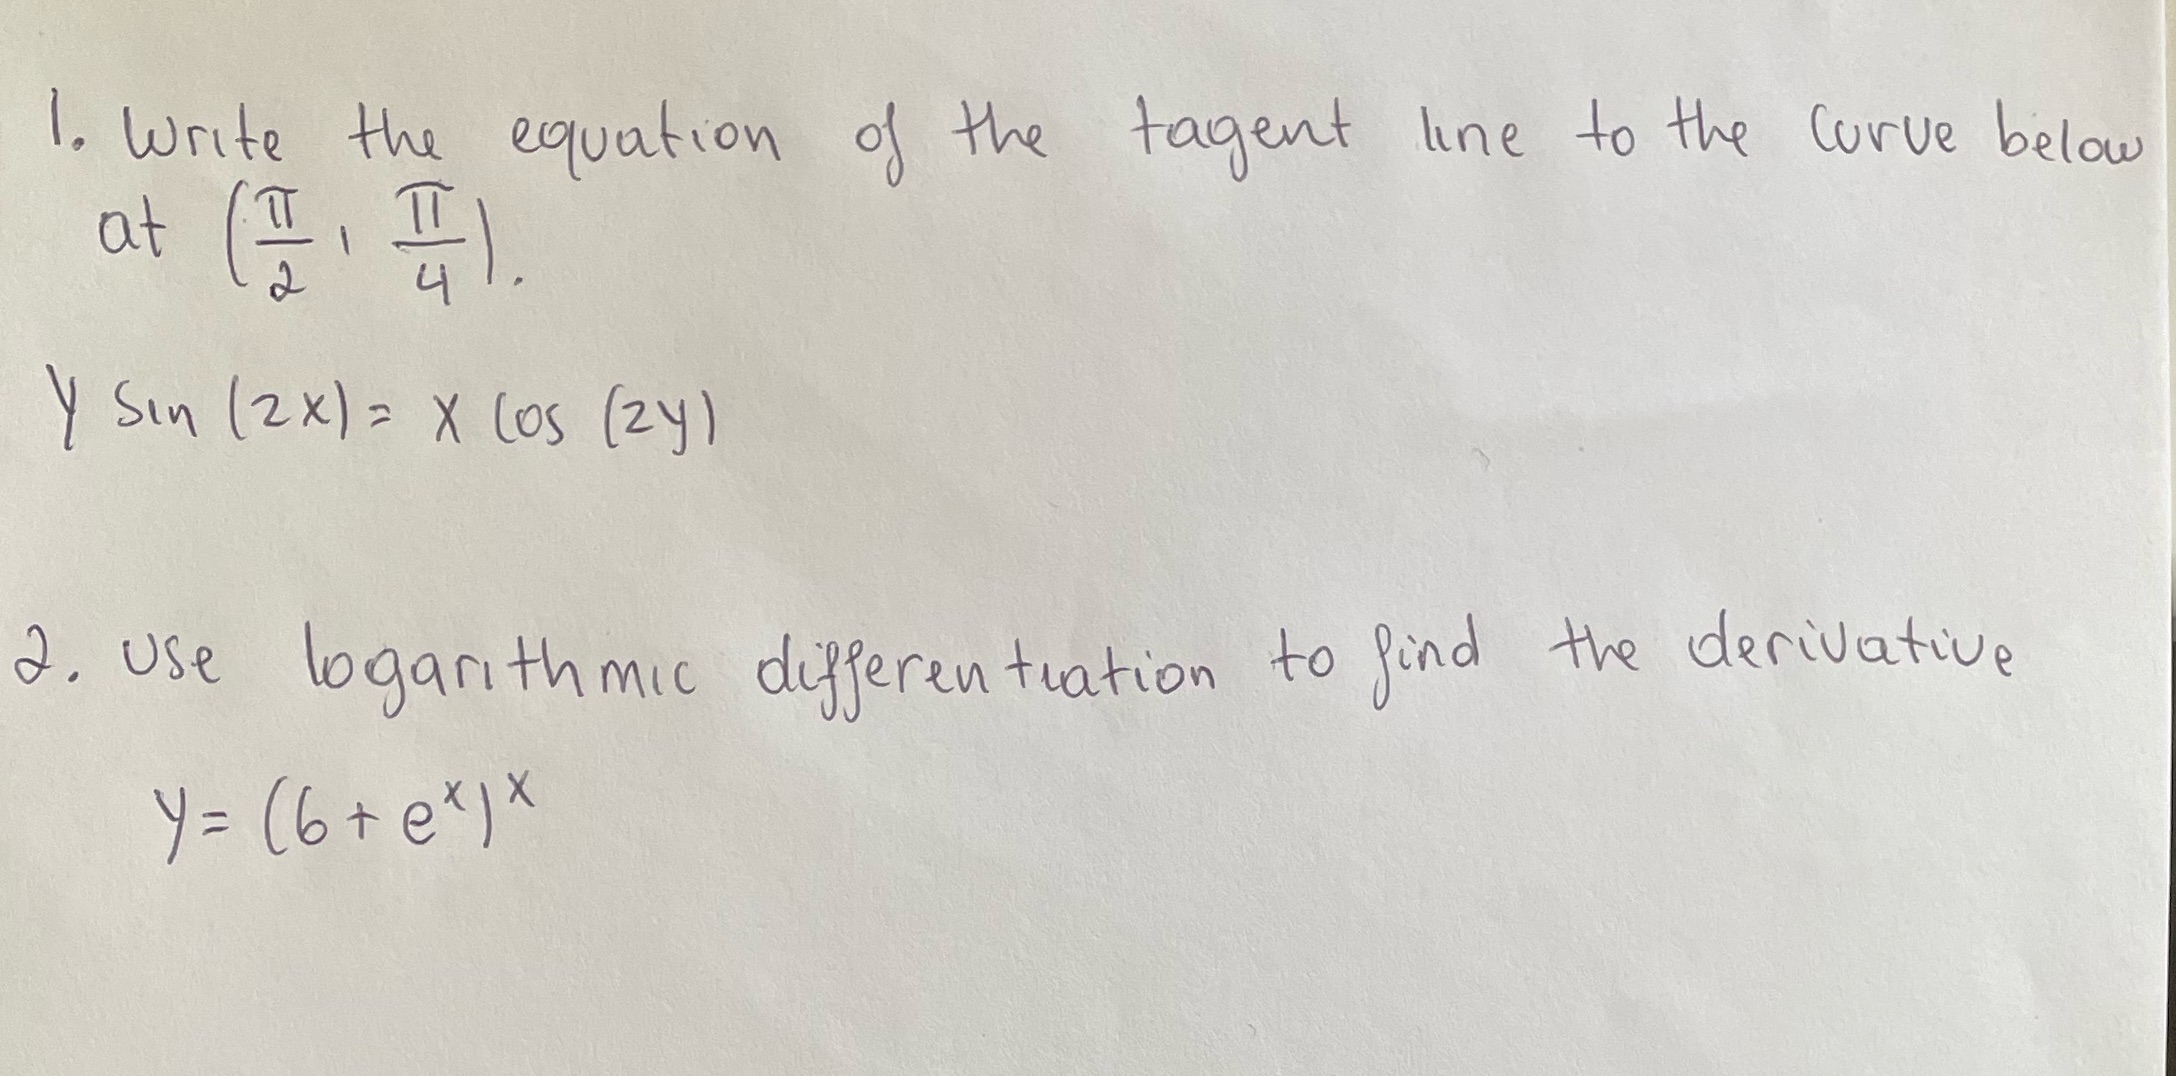 1. Write the equation of the tagent line to the curve below
at (π/2, π/4).
y sin (2x) = x cos (2y)
2. Use logarithmic differentiation to find the derivative
y = (6 + eˣ)ˣ